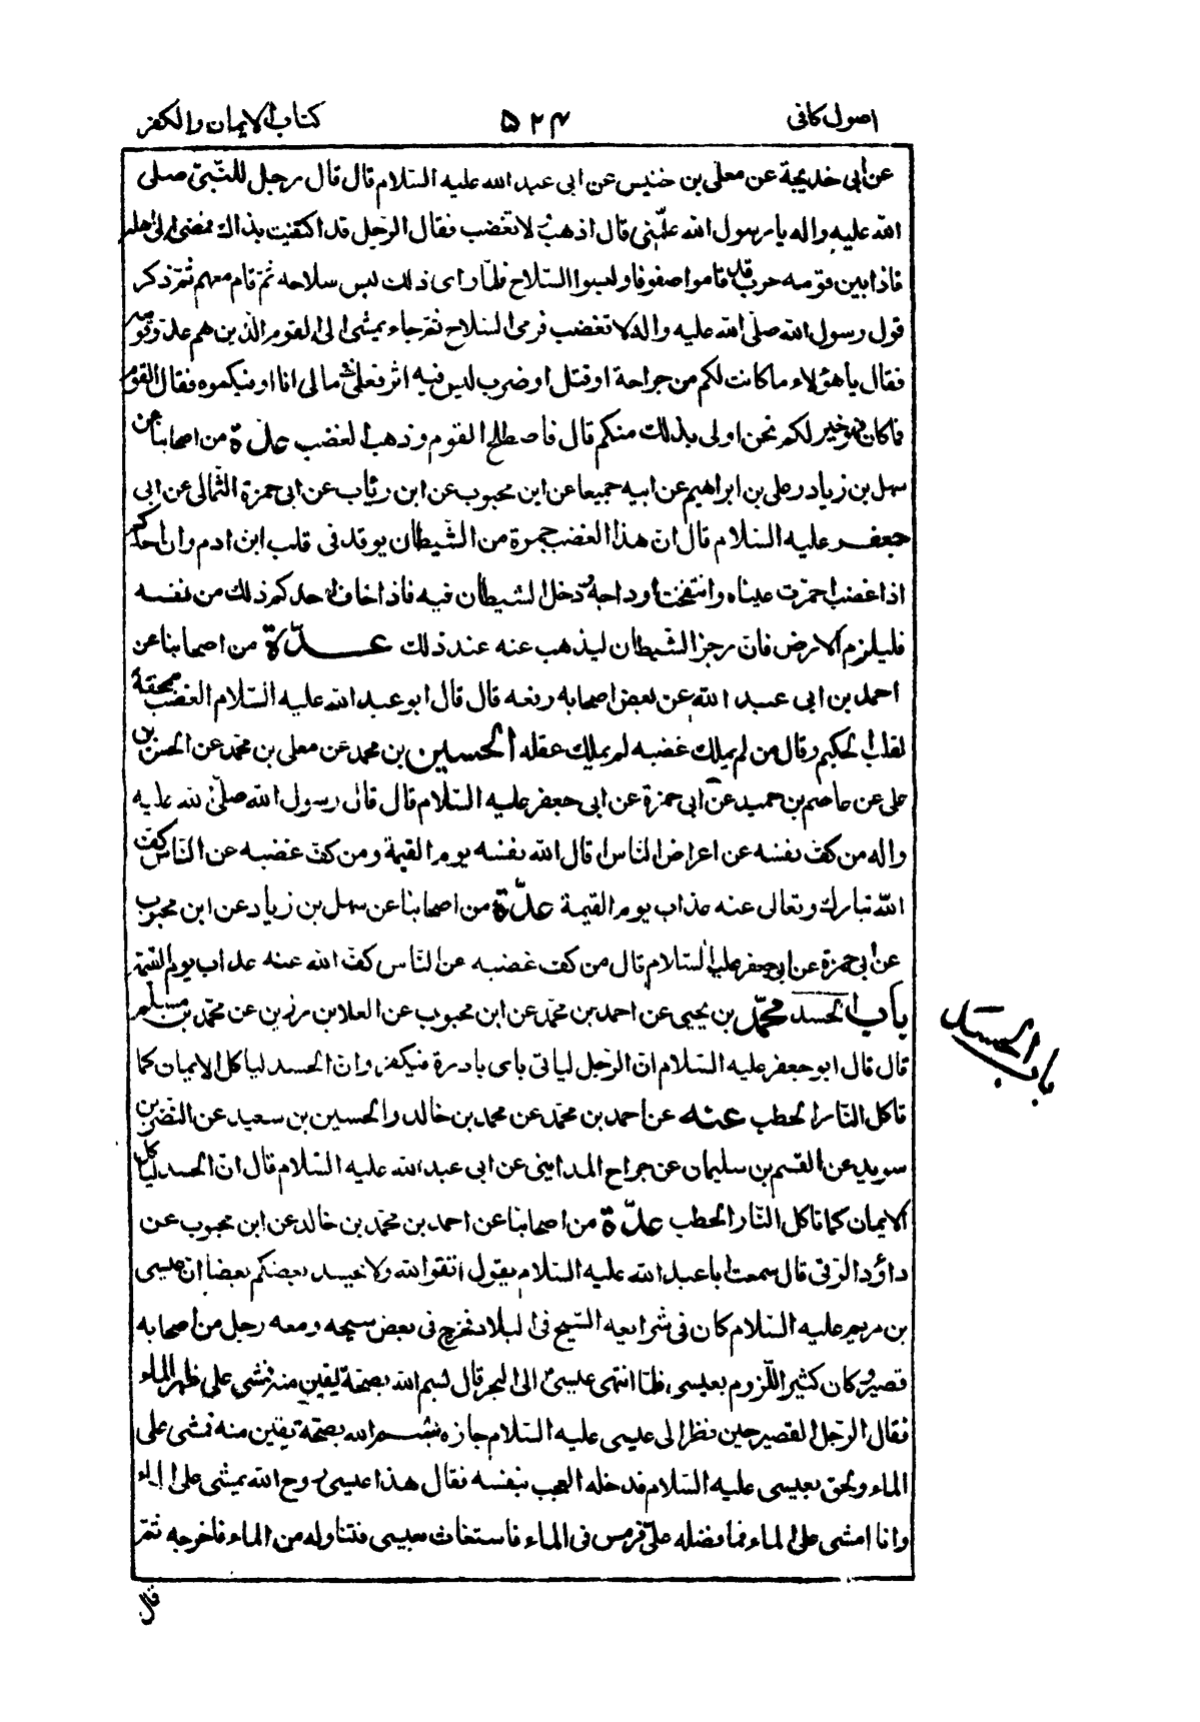 اصول كافى ۵۲۴ كتاب الايمان والكفر
عن أبى خديجة عن معلى بن خنيس عن ابى عبد الله عليه السّلام قال قال رجل للنّبىّ صلى
الله عليه واله يا رسول الله علّمنى قال اذهب ولا تغضب فقال الرّجل قد اكتفيت بذاك فمضى الى اهله
فاذا بين قومه حرب قد قاموا صفوفا ولبسوا السّلاح فلمّا راى ذلك لبس سلاحه ثمّ قام معهم ثمّ ذكر
قول رسول الله صلّى الله عليه واله لا تغضب فرمى السّلاح ثمّ جاء يمشى الى القوم الّذين هم عدوّ قومه
فقال يا هؤلاء ما كانت لكم من جراحة او قتل او ضرب ليس فيه اثر فعلىّ فى مالى انا اوفيكموه فقال القوم
فما كان فهو خير لكم نحن اولى بذلك منكم قال فاصطلح القوم وذهب الغضب عدّة من اصحابنا عن
سهل بن زياد وعلى بن ابراهيم عن ابيه جميعا عن ابن محبوب عن ابن رئاب عن ابى حمزة الثّمالى عن ابى
جعفر عليه السّلام قال انّ هذا الغضب جمرة من الشّيطان يوقد فى قلب ابن ادم وان احدكم
اذا غضب احمرّت عيناه وانتفخت اوداجه ودخل الشيطان فيه فاذا خاف احدكم ذلك من نفسه
فليلزم الارض فانّ رجز الشّيطان ليذهب عنه عند ذلك عدّة من اصحابنا عن
احمد بن ابى عبد الله عن بعض اصحابه رفعه قال قال ابو عبد الله عليه السّلام الغضب ممحقة
لقلب الحكيم وقال من لم يملك غضبه لم يملك عقله الحسين بن محمد عن معلى بن محمّد عن الحسن بن
على عن عاصم بن حميد عن ابى حمزة عن ابى جعفر عليه السّلام قال قال رسول الله صلّى الله عليه
واله من كفّ نفسه عن اعراض النّاس اقال الله نفسه يوم القيمة ومن كفّ غضبه عن النّاس كفّ
الله تبارك وتعالى عنه عذاب يوم القيمة عدّة من اصحابنا عن سهل بن زياد عن ابن محبوب
عن ابى حمزة عن ابى جعفر عليه السّلام قال من كفّ غضبه عن النّاس كفّ الله عنه عذاب يوم القيمة
باب الحسد محمّد بن يحيى عن احمد بن محمّد عن ابن محبوب عن العلا بن رزين عن محمّد بن مسلم
قال قال ابو جعفر عليه السّلام انّ الرّجل لياتى باى بادرة فيكفر وانّ الحسد لياكل الايمان كما
تاكل النّار الحطب عنه عن احمد بن محمّد عن محمد بن خالد والحسين بن سعيد عن النّضر بن
سويد عن القسم بن سليمان عن جراح المداينى عن ابى عبد الله عليه السّلام قال انّ الحسد لياكل
الايمان كما تاكل النّار الحطب عدّة من اصحابنا عن احمد بن محمّد بن خالد عن ابن محبوب عن
داؤد الرّقى قال سمعت ابا عبد الله عليه السّلام يقول اتّقوا الله ولا يحسد بعضكم بعضا انّ عيسى
بن مريم عليه السّلام كان فى شرايعه السّيح فى البلاد فخرج فى بعض سيحه ومعه رجل من اصحابه
قصير وكان كثير اللّزوم بعيسى فلمّا انتهى عيسى الى البحر قال بسم الله بصحّة يقين منه فمشى على ظهر الماء
فقال الرّجل القصير حين نظر الى عيسى عليه السّلام جازه بسم الله بصحّة يقين منه فمشى على
الماء ولحق بعيسى عليه السّلام فدخله العجب بنفسه فقال هذا عيسى روح الله يمشى على الماء
وانا امشى على الماء فما فضله علىّ فرمس فى الماء فاستغاث بعيسى فتناوله من الماء فاخرجه ثمّ
قال
باب الحسد